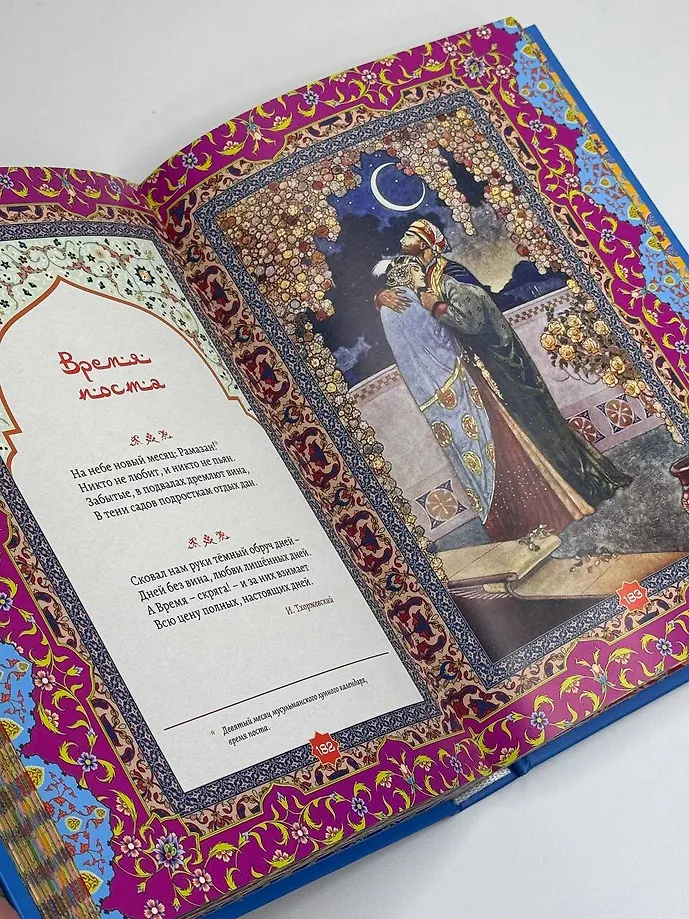 Время
поста
На небе новый месяц: Рамазан!*
Никто не любит, и никто не пьян.
Забытые, в подвалах дремлют вина,
В тени садов подросткам отдых дан.
Сковал нам руки тёмный обруч дней –
Дней без вина, любви лишённых дней.
А Время – скряга! – и за них взимает
Всю цену полных, настоящих дней.
И. Тхоржевский
* Девятый месяц мусульманского лунного календаря,
время поста.
182
183